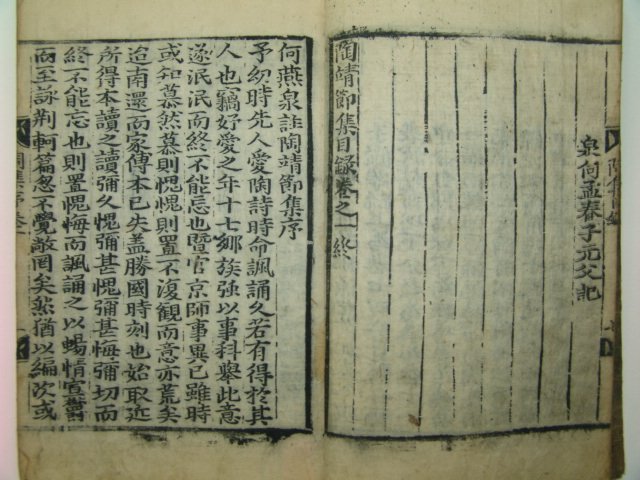 泉何孟春子元父記
陶靖節集目錄卷之一終
何燕泉註陶靖節集序
予幼時先人愛陶詩時命諷誦久若有得於其
人也竊好愛之年十七鄉族強以事科舉此意
遂泯泯而終不能忘也暨官京師事異已雖時
或知慕然慕則愧愧則置不復観而意亦荒矣
迨南還而家傳本已失蓋勝國時刻也始取近
所得本讀之讀彌久愧彌甚愧彌甚悔彌切而
終不能忘也則置愧悔而諷誦之以暢情宣欝
而至詠荆軻篇忽不覺敞罔矣然猶以編次或
陶集序卷一